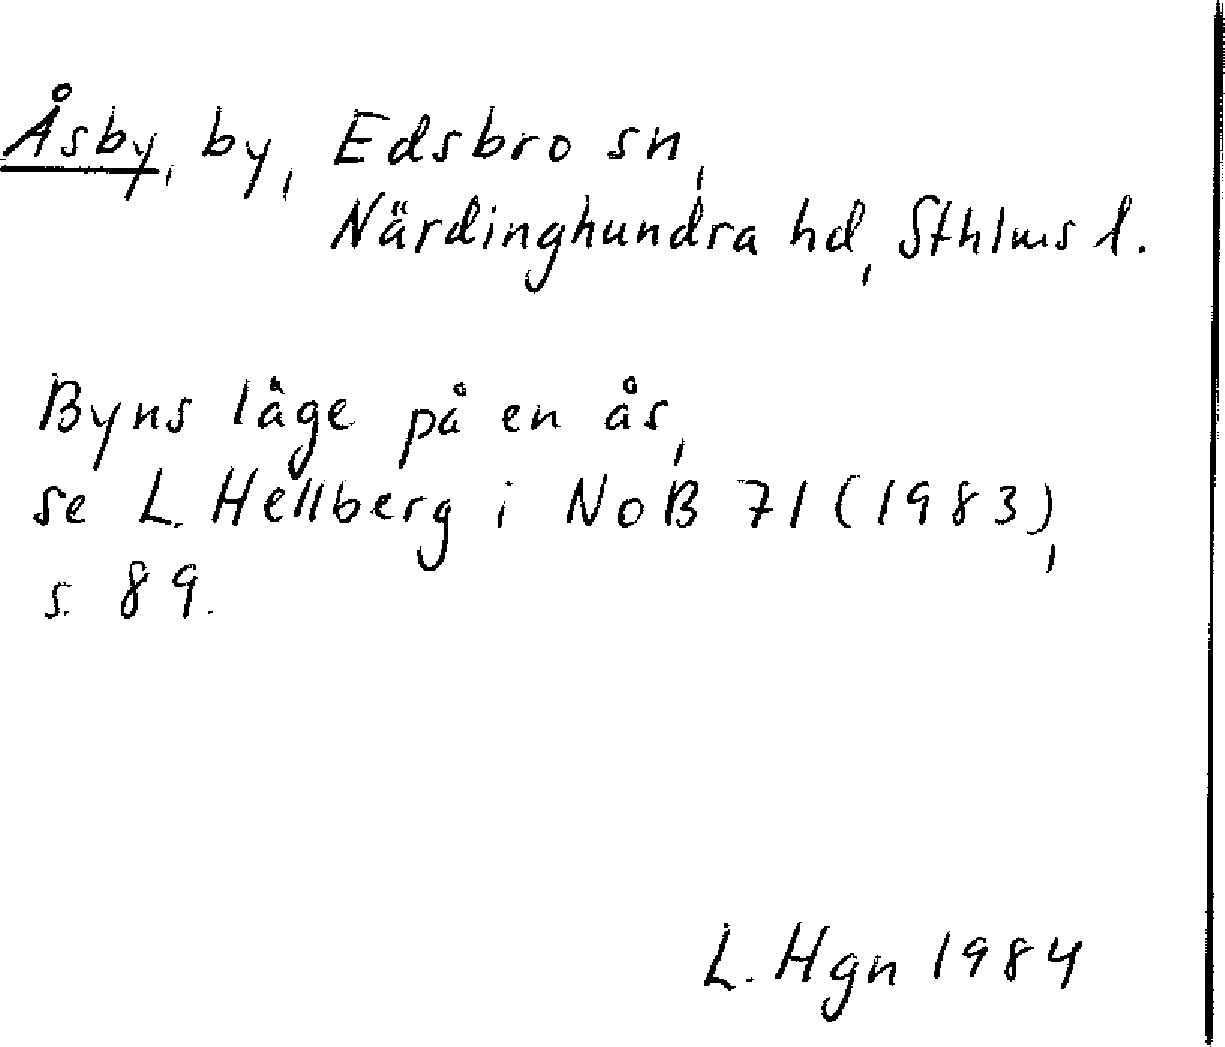 Åsby, by, Edsbro sn,
Närdinghundra hd, Sthlms l.
Byns läge på en ås,
se L. Hellberg i NoB 71 (1983),
s. 89.
L. Hgn 1984